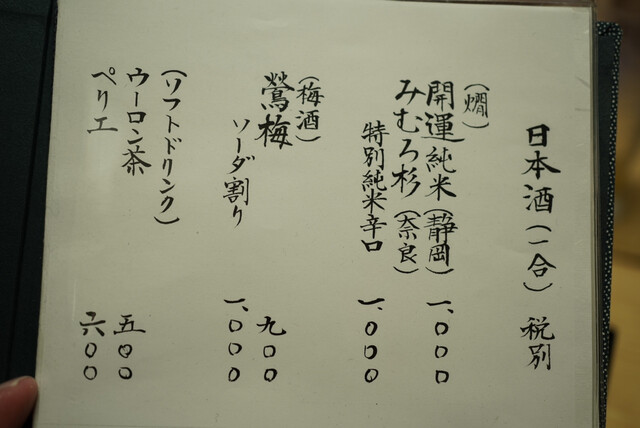 日本酒(一合) 税別
(燗)
開運純米(静岡) 一、〇〇〇
みむろ杉(奈良)
特別純米辛口 一、〇〇〇
(梅酒)
鶯梅 九〇〇
ソーダ割り 一、〇〇〇
(ソフトドリンク)
ウーロン茶 五〇〇
ペリエ 六〇〇